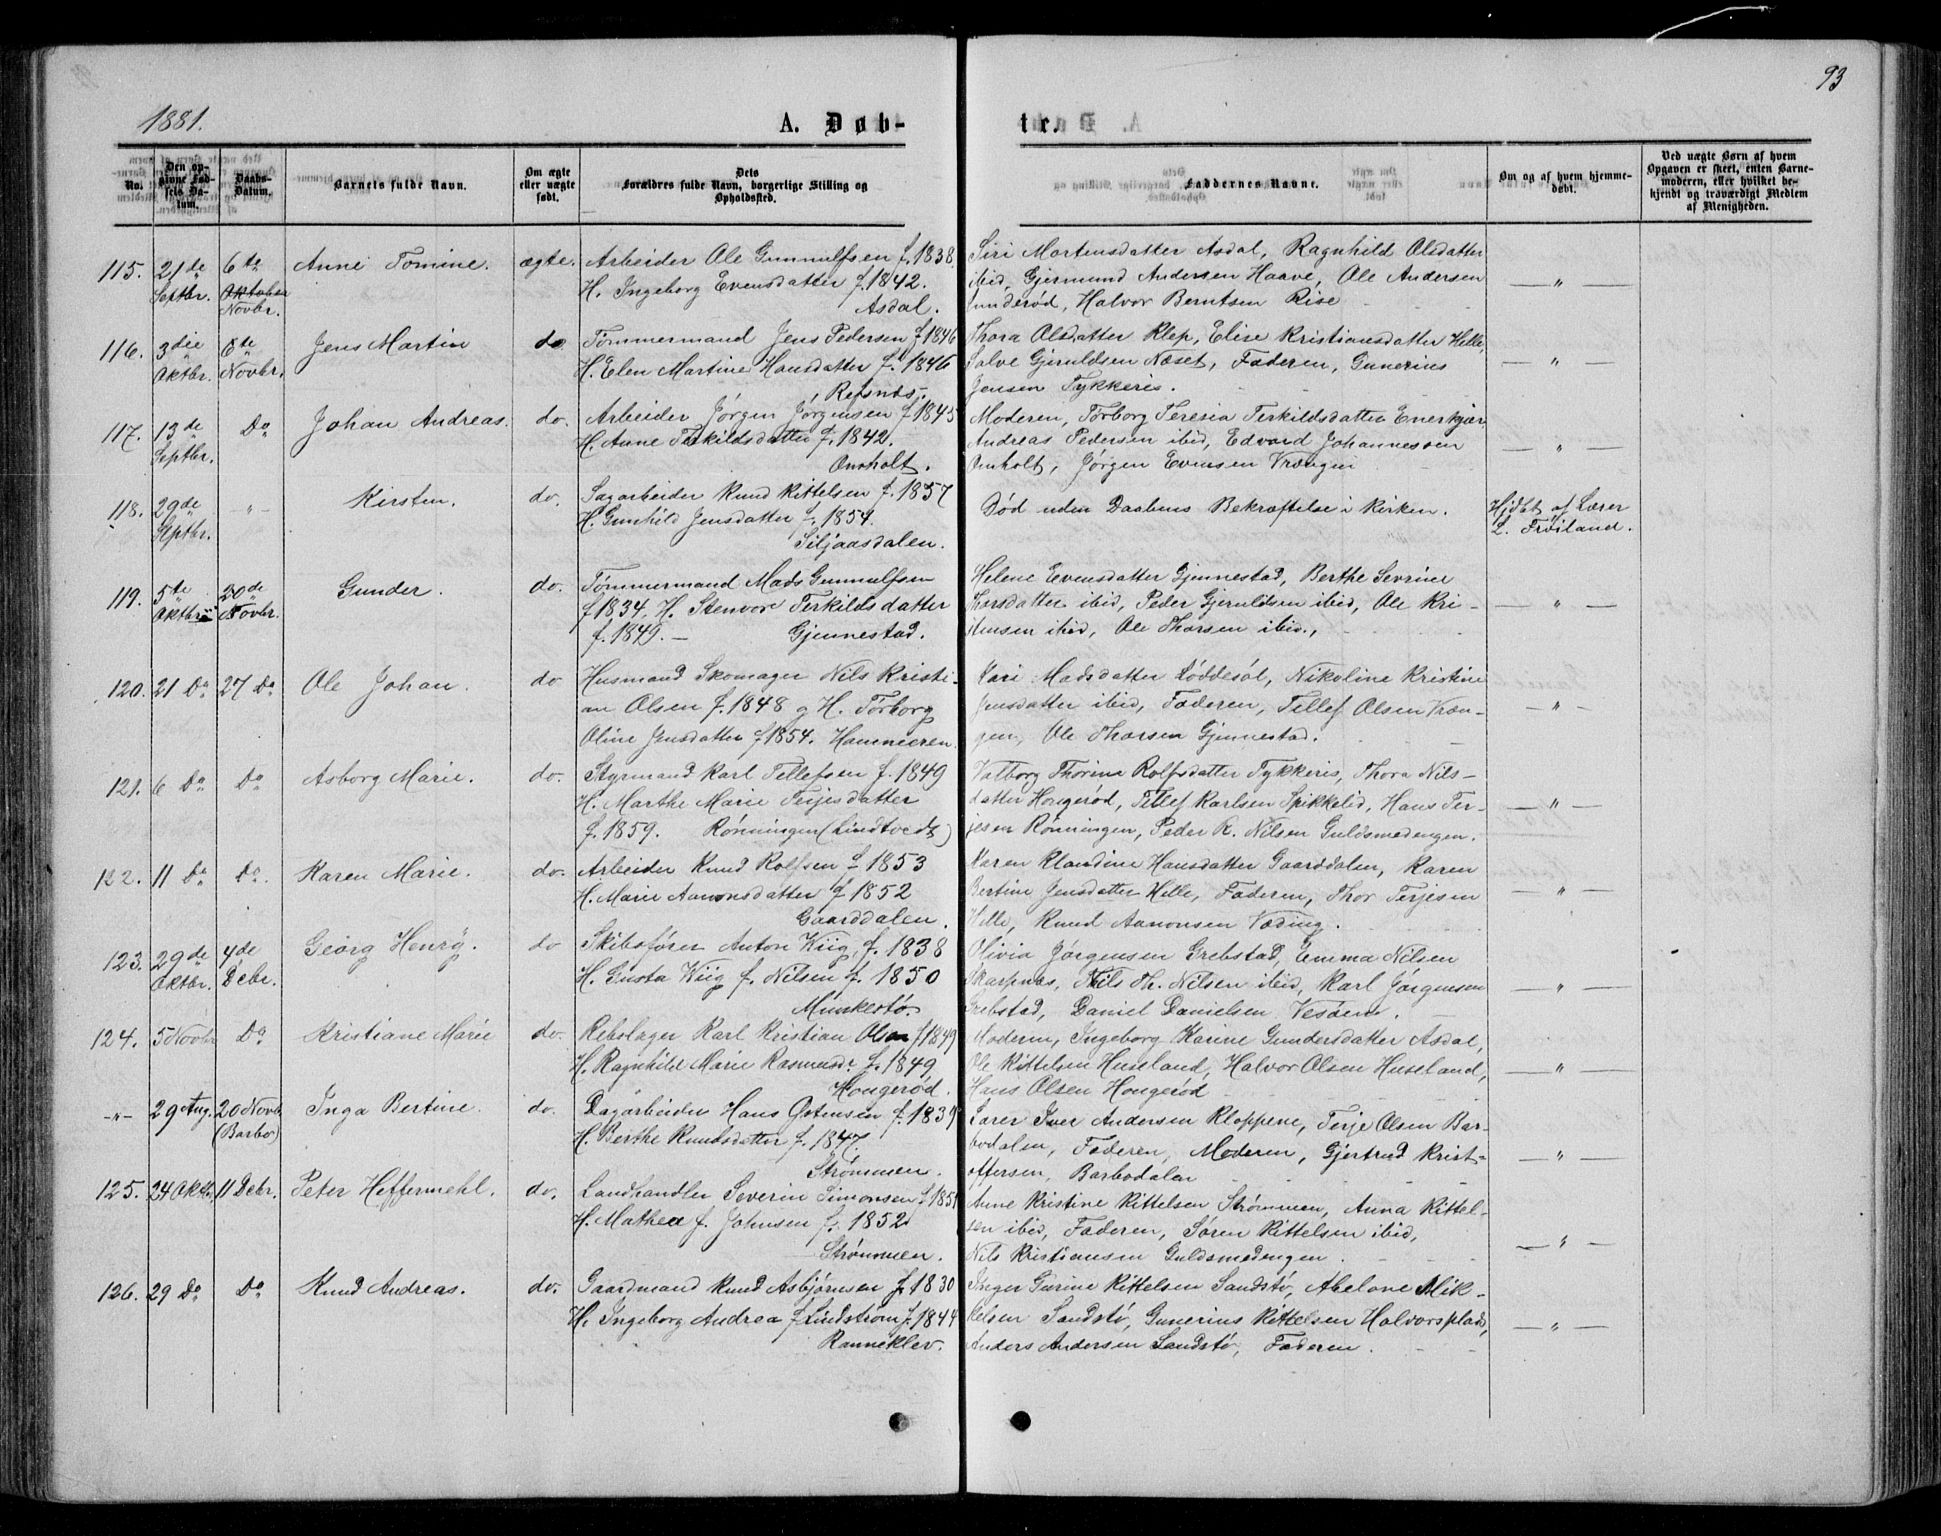 93
1881.
A. Døb-
te.
No.
Den opgivne Fødsels Datum.
Daabs-Datum.
Barnets fulde Navn.
Om ægte eller uægte født.
Dets Forældres fulde Navn, borgerlige Stilling og Opholdssted.
Faddernes Navne.
Om og af hvem hjemmedøbt.
Ved uægte Børn af hvem Opgaven er skeet, enten Barnemoderen, eller hvilket bekjendt og troværdigt Medlem af Menigheden.
115. 21de Septbr. 6te Oktober Novbr. Anne Tomine. ægte.
Arbeider Ole Gunnulfsen f. 1838
H. Ingeborg Evensdatter f. 1842.
Asdal.
Siri Mortensdatter Asdal, Ragnhild Olsdatter
ibid, Gjermund Andersen Haave, Ole Andersen
Sunderød, Halvor Berntsen Rise
— " —
116. 3die Oktbr. 6te Novbr. Jens Martin do
Tømmermand Jens Pedersen f. 1846
H. Elen Martine Hansdatter f. 1846
Refsnæs.
Thora Olsdatter Klep, Elise Kristiansdatter Helle,
Salve Gjeruldsen Næset, Faderen, Gunerius
Jensen Tykkeris.
— " —
117. 13de Septbr. Do Johan Andreas. do.
Arbeider Jørgen Jørgensen f. 1845
H. Anne Terkildsdatter f. 1842.
Omholt.
Moderen, Tørborg Teresia Terkildsdatter Enerkjær
Andreas Pedersen ibid, Edvard Johannessen
Omholt, Jørgen Evensen Vrængen
— " —
118. 29de Septbr. - " - Kirsten. do.
Sagarbeider Knud Kittelsen f. 1857
H. Gunhild Jensdatter f. 1854.
Siljaasdalen.
Død uden Daabens Bekræftelse i Kirken.
Hjdbt af Lærer
L. Frøiland.
119. 5te Oktbr. 20de Novbr. Gunder. do.
Tømmermand Mads Gunnulfsen
f. 1834. H. Stenvor Terkildsdatter
f. 1849. — Gjennestad.
Helene Evensdatter Gjennestad, Berthe Sevrine
Thorsdatter ibid, Peder Gjeruldsen ibid, Ole Kri-
stensen ibid, Ole Thorsen ibid.,
— " —
120. 21 Do 27 Do Ole Johan. do
Husmand Skomager Nils Kristi-
an Olsen f. 1848 og H. Tørborg
Oline Jensdatter f. 1854. Hammeren.
Kari Madsdatter Løddesøl, Nikoline Kristine
Jensdatter ibid, Faderen, Tellef Olsen Vræn-
gen, Ole Thorsen Gjennestad.
— " —
121. 6 Do Do Asborg Marie. do.
Styrmand Karl Tellefsen f. 1849
H. Marthe Marie Terjesdatter
f. 1859. Rønningen (Lindtvedt)
Valborg Thorina Rolfsdatter Tykkeris, Thora Nils-
datter Hougerød, Tellef Karlsen Spikkelid, Hans Ter-
jesen Rønningen, Peder K. Nilsen Guldsmedengen.
— " —
122. 11 Do Do. Karen Marie. do.
Arbeider Knud Rolfsen f 1853
H. Marie Aanonsdatter f 1852
Gaarddalen.
Karen Klandine Hansdatter Gaarddalen, Karen
Bertine Jensdatter Helle, Faderen, Thor Terjesen
Helle, Knud Aanonsen Væding.
— " —
123. 29de Oktbr. 4de Debr. Georg Henry. do
Skibsfører Anton Wiig f. 1838
H. Gusta Wiig f. Nilsen f. 1850
Munkestø
Olivia Jørgensen Grebstad, Emma Nilsen
Skarpnæs, Nils Th. Nilsen ibid, Karl Jørgensen
Grebstad, Daniel Danielsen Vesøen.
— " —
124. 5 Novbr Do Kristiane Marie do.
Rebslager Karl Kristian Olsen f 1849
H. Ragnhild Marie Rasmusdr f. 1849,
Hougerød.
Moderen, Ingeborg Karine Gundersdatter Asdal,
Ole Kittelsen Huseland, Halvor Olsen Huseland,
Hans Olsen Hougerød
— " —
- " - 29 Aug. 20 Novb. (Barbo) Inga Bertine. do.
Dagarbeider Hans Ostensen f. 1839
H. Berthe Knudsdatter f. 1847
Strømmen.
Lærer Iver Andersen Kloppene, Terje Olsen Bar-
bodalen, Faderen, Moderen, Gjertrud Krist-
offersen, Barbodalen
— " —
125. 24 Oktb. 11 Debr. Peter Heffermehl. do.
Landhandler Severin Simonsen f. 1851
H. Mathea f. Johnsen f. 1852
Strømmen.
Anne Kristine Kittelsen Strømmen, Anna Kittel-
sen ibid, Faderen, Søren Kittelsen ibid,
Nils Kristiansen Guldsmedengen.
— " —
126. 29 Do Do Knud Andreas. do.
Gaardmand Knud Asbjørnsen f. 1830
H. Ingeborg Andrea f. Lindstrøm f. 1844
Ranneklev.
Inger Gurine Kittelsen Sandstø, Abelone Mik-
kelsen Sandstø, Gunerius Kittelsen Halvorsplads,
Anders Andersen Sandstø, Faderen.
— " —